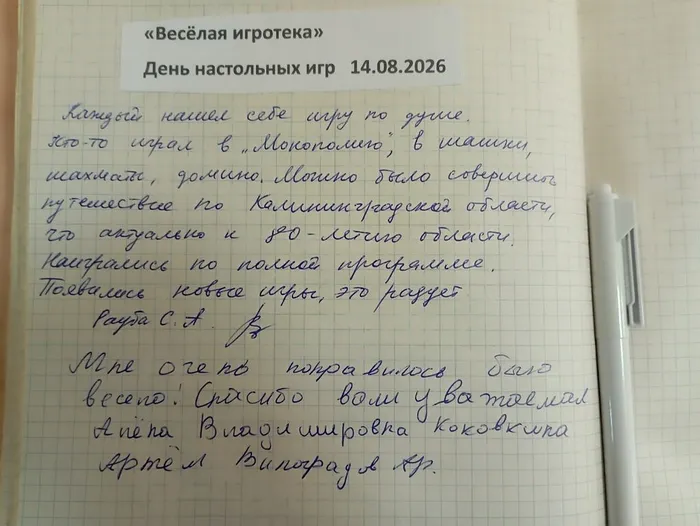 «Весёлая игротека»
День настольных игр 14.08.2026
Каждый нашел себе игру по душе.
Кто-то играл в „Монополию", в шашки,
шахматы, домино. Можно было совершить
путешествие по Калининградской области,
что актуально к 80-летию области.
Наигрались по полной программе.
Появились новые игры, это радует
Рауба С. А.
Мне очень понравилось было
весело! Спасибо вам уважаемая
Алёна Владимировна Коковкина
Артём Виноградов Ар.